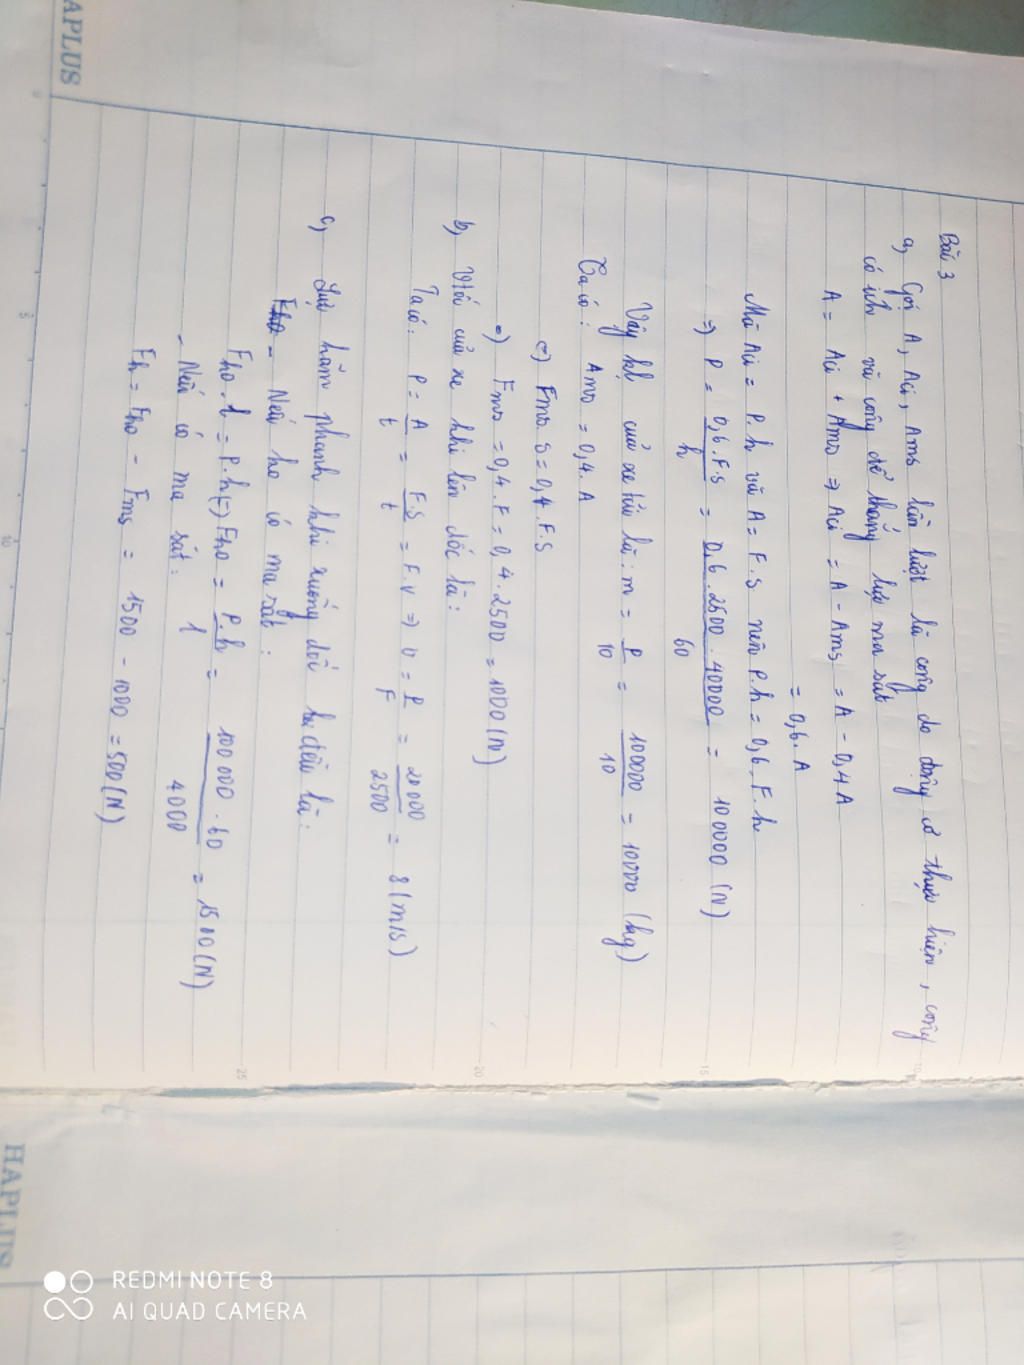 Bài 3
a, Gọi A, Aci, Ams lần lượt là công do động cơ thực hiện, công
có ích và công để thắng lực ma sát
A = Aci + Ams => Aci = A - Ams = A - 0,4A
= 0,6.A
Mà Aci = P.h và A = F.s nên P.h = 0,6.F.h
=> P = 0,6.F.s / h = 0,6.2500.40000 / 60 = 100000 (N)
Vậy kl của xe tải là: m = P / 10 = 100000 / 10 = 10000 (kg)
Ta có: Ams = 0,4.A
(=) Fms.s = 0,4.F.s
=) Fms = 0,4.F = 0,4.2500 = 1000 (N)
b, Vtốc của xe khi lên dốc là:
Ta có: P = A / t = F.s / t = F.v => v = P / F = 20000 / 2500 = 8 (m/s)
c, Lực hãm phanh khi xuống dốc đều là:
- Nếu ko có ma sát:
Fho.l = P.h (=) Fho = P.h / l = 100000.60 / 4000 = 1500 (N)
- Nếu có ma sát:
Fh = Fho - Fms = 1500 - 1000 = 500 (N)
APLUS
HAPLUS
5
10
10
15
20
25
REDMI NOTE 8
AI QUAD CAMERA